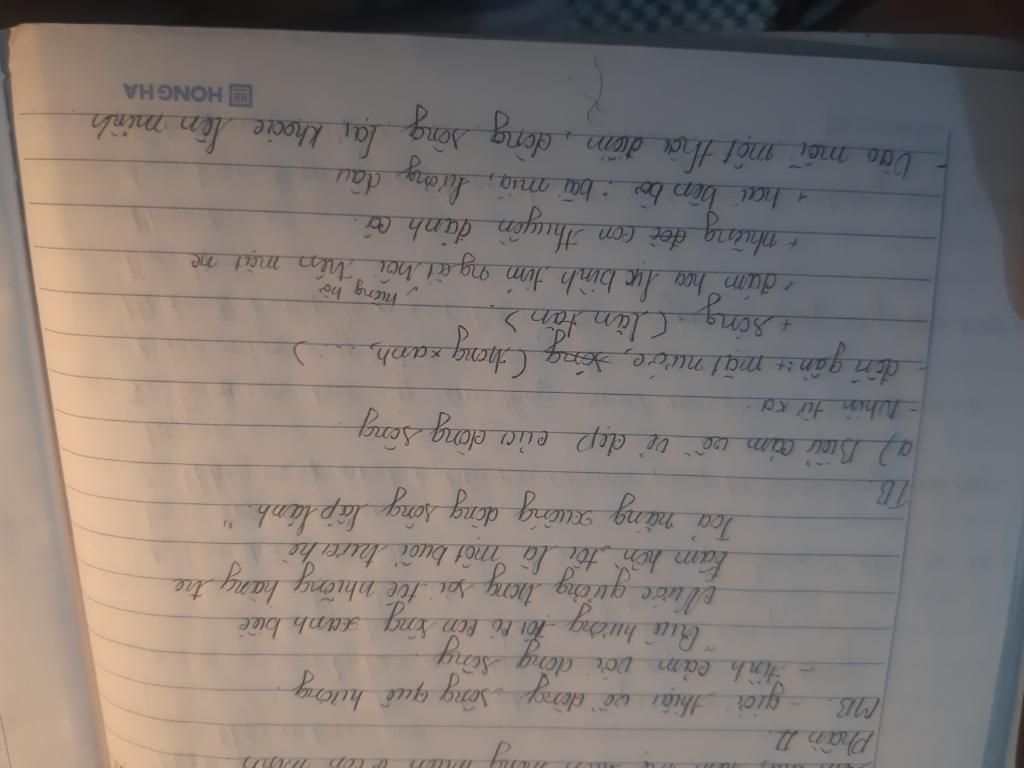 Phần II.
MB: - giới thiệu về dòng sông quê hương.
- tình cảm với dòng sông
"Quê hương tôi có con sông xanh biếc
Nước gương trong soi tóc những hàng tre
Tâm hồn tôi là một buổi trưa hè
Toả nắng xuống dòng sông lấp lánh."
TB:
a) Biểu cảm về vẻ đẹp của dòng sông
- Nhìn từ xa:
- đến gần: + mặt nước, (trong xanh, ...)
+ Sóng (lăn tăn)
+ đám hoa lục bình tím ngát trôi trên mặt nc
+ những đoàn con thuyền đánh cá.
+ hai bên bờ: bãi mía, nương dâu
- Vào mỗi một thời điểm, dòng sông lại khoác lên mình
HONG HA